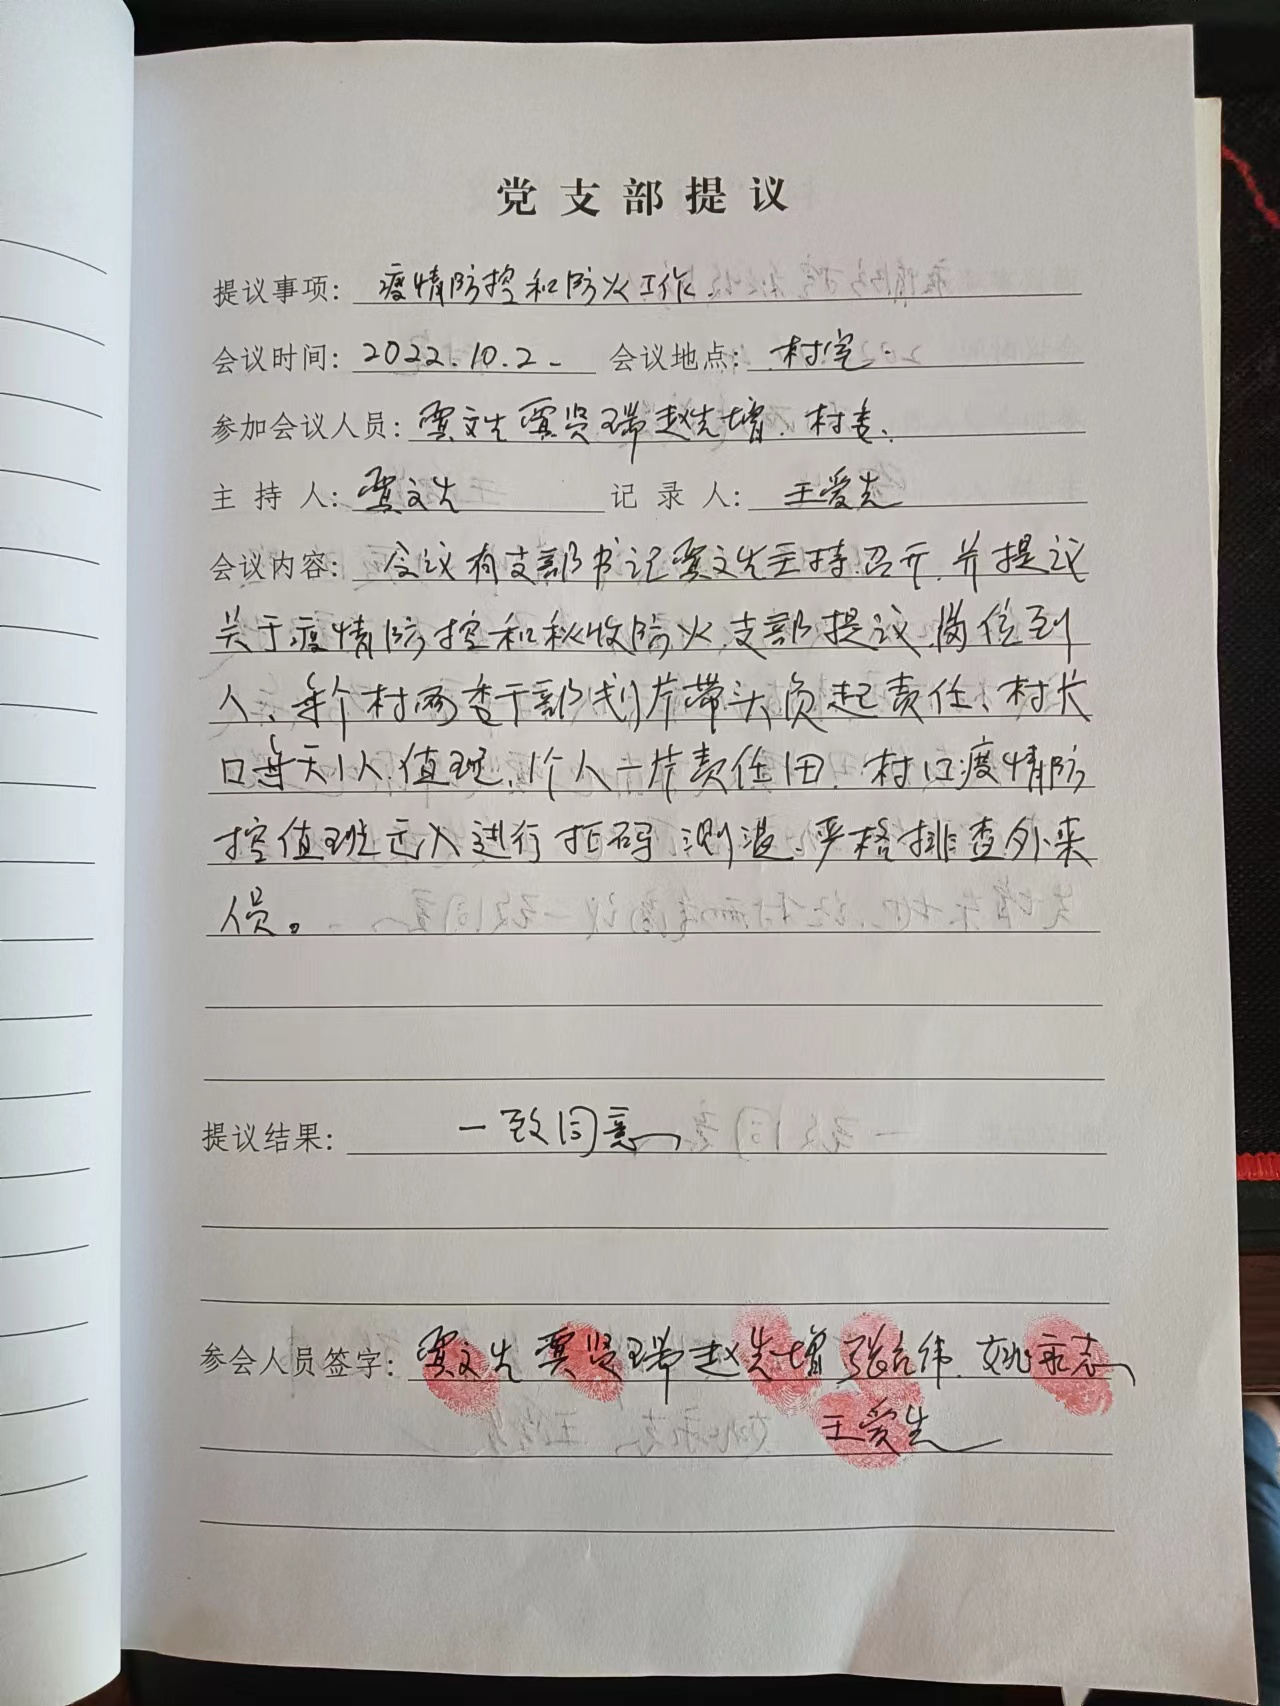 党支部提议
提议事项: 疫情防控和防火工作
会议时间: 2022.10.2 会议地点: 村室
参加会议人员: 贾文先 贾贤瑞 赵先增、村委、
主持人: 贾文先 记录人: 王爱先
会议内容: 会议有支部书记贾文先主持召开,并提议
关于疫情防控和秋收防火,支部提议,岗位到
人、每个村两委干部划片带头负起责任、村长
口每天1人值班,1个人一片责任田,村口疫情防
控值班 入进行扫码测温、严格排查外来
人员。
提议结果: 一致同意
参会人员签字: 贾文先 贾贤瑞 赵先增 张 伟 姚永志
王爱先